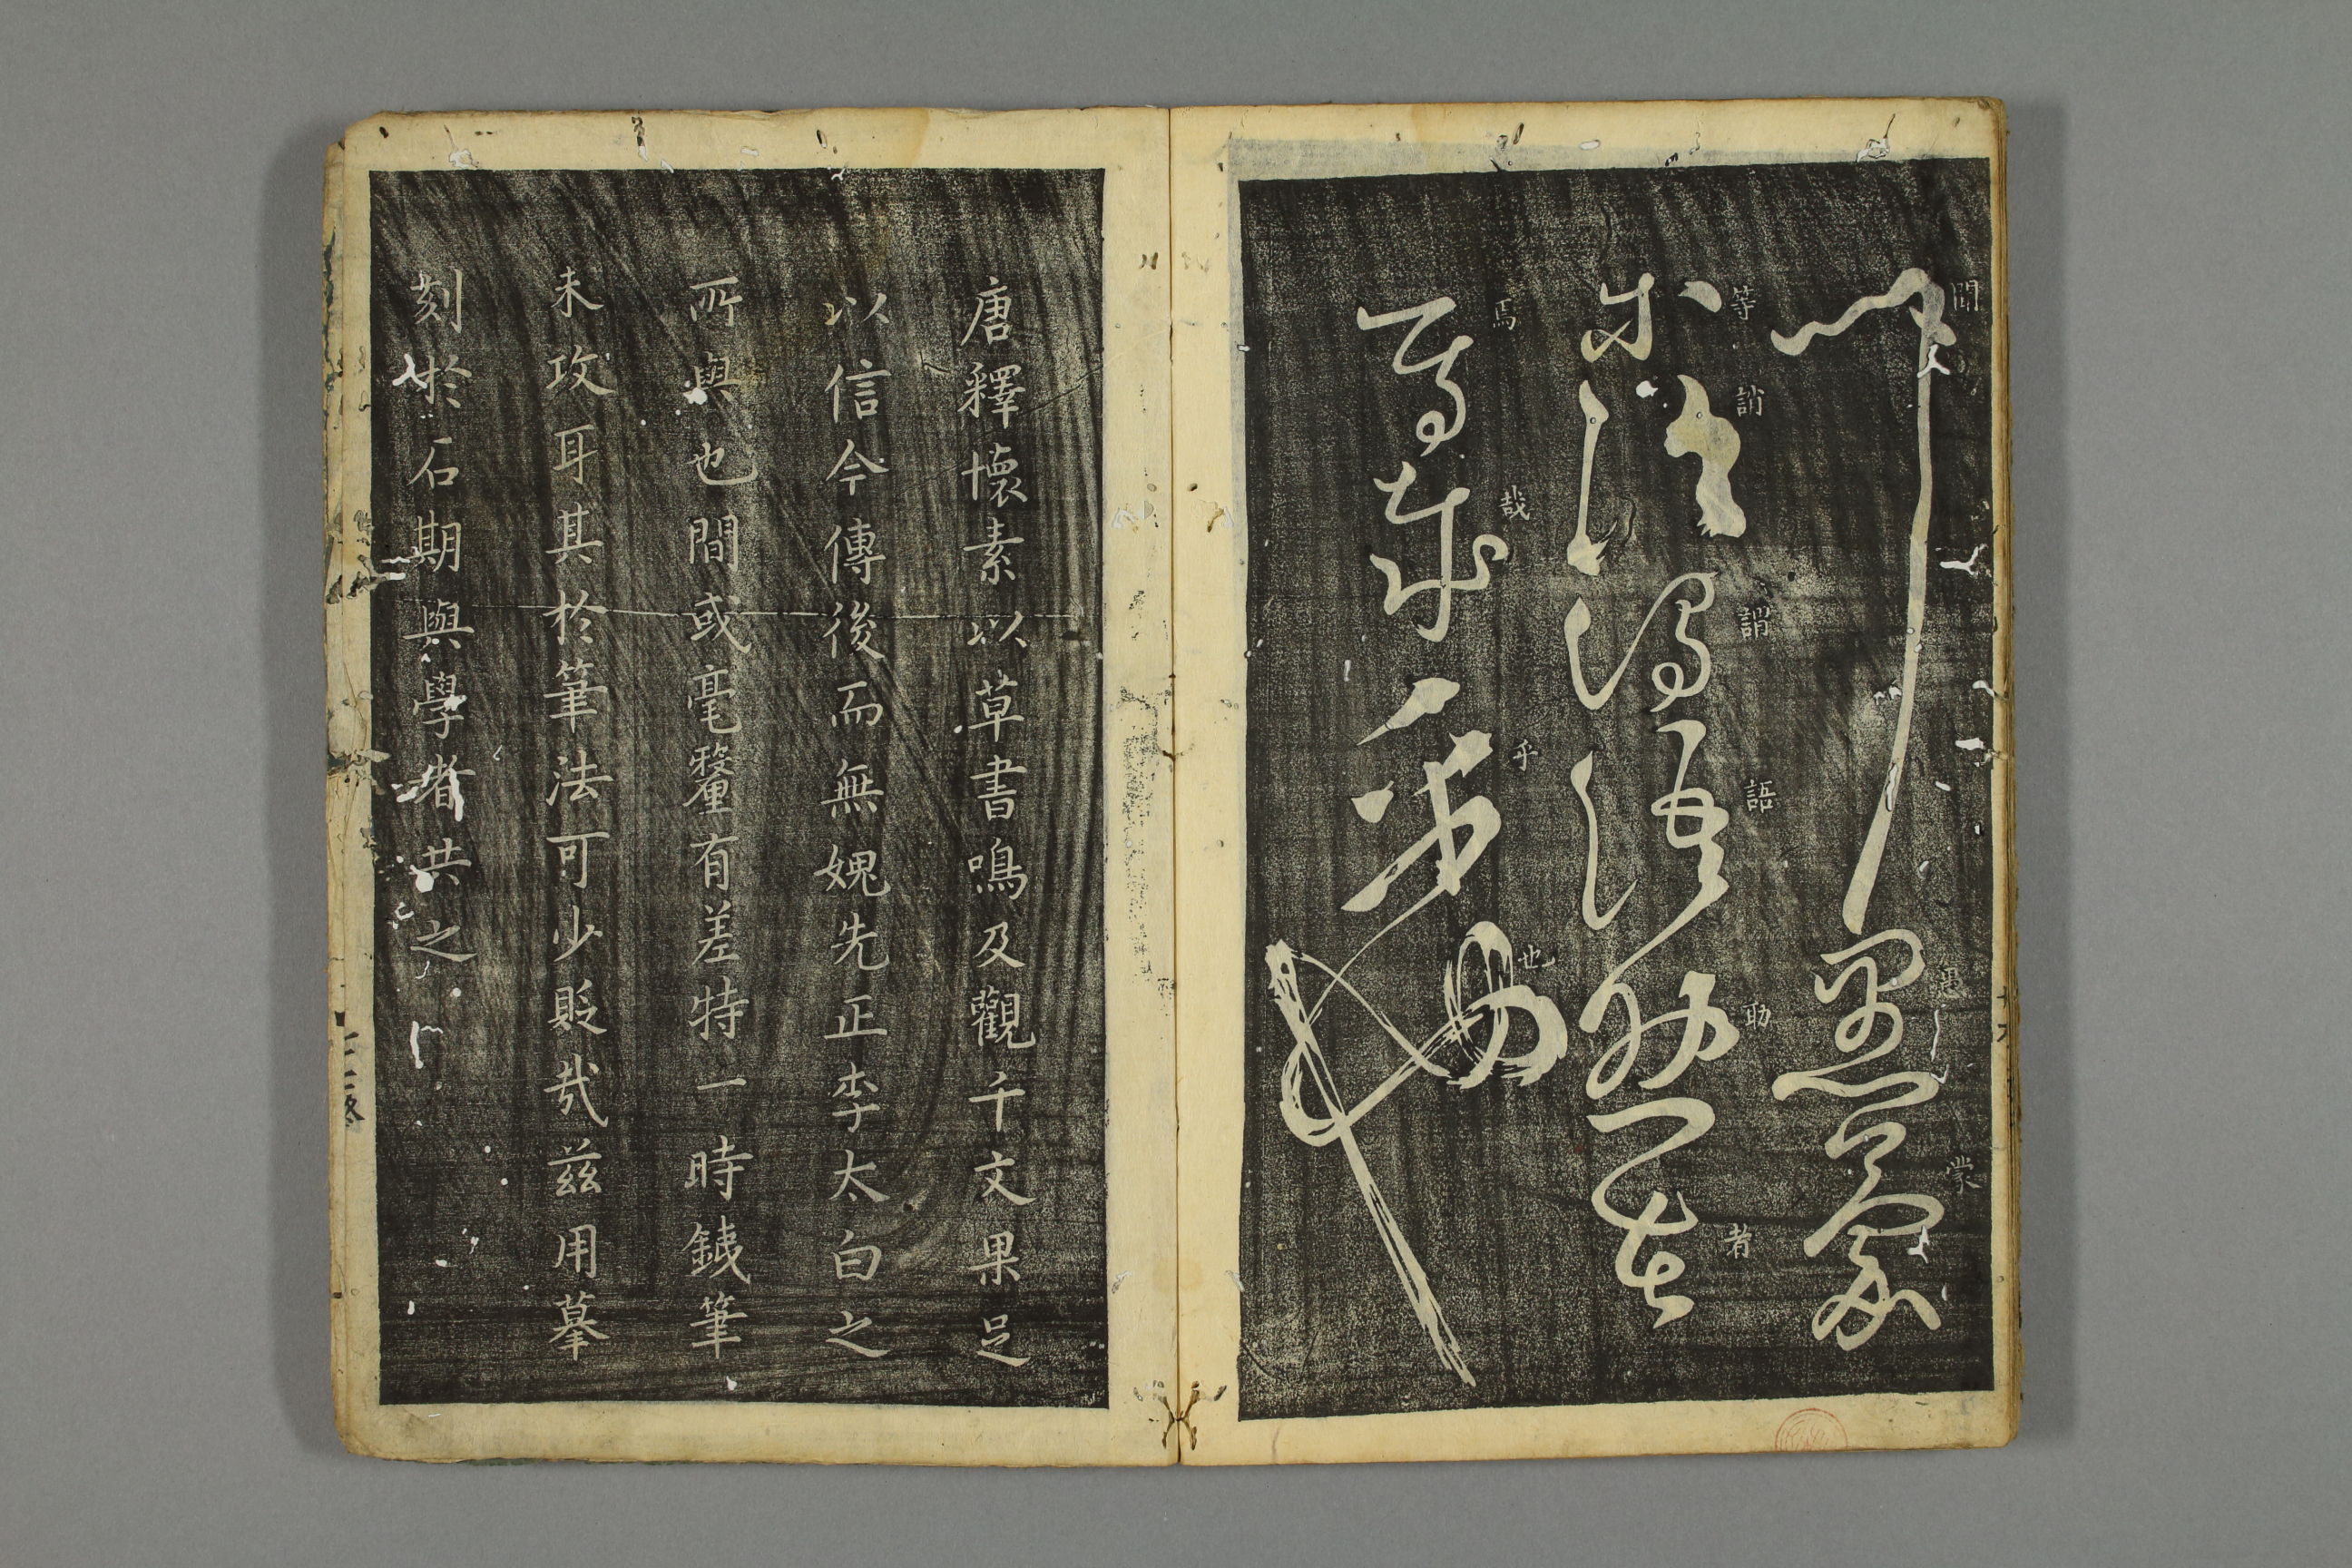 聞愚蒙
聞愚蒙
等誚謂語助者
等誚謂語助者
焉哉乎也
焉哉乎也
唐釋懷素以草書鳴及觀千文果足
以信今傳後而無媿先正李太白之
所與也間或毫釐有差特一時銕筆
未攻耳其於筆法可少貶哉茲用摹
刻於石期與學者共之